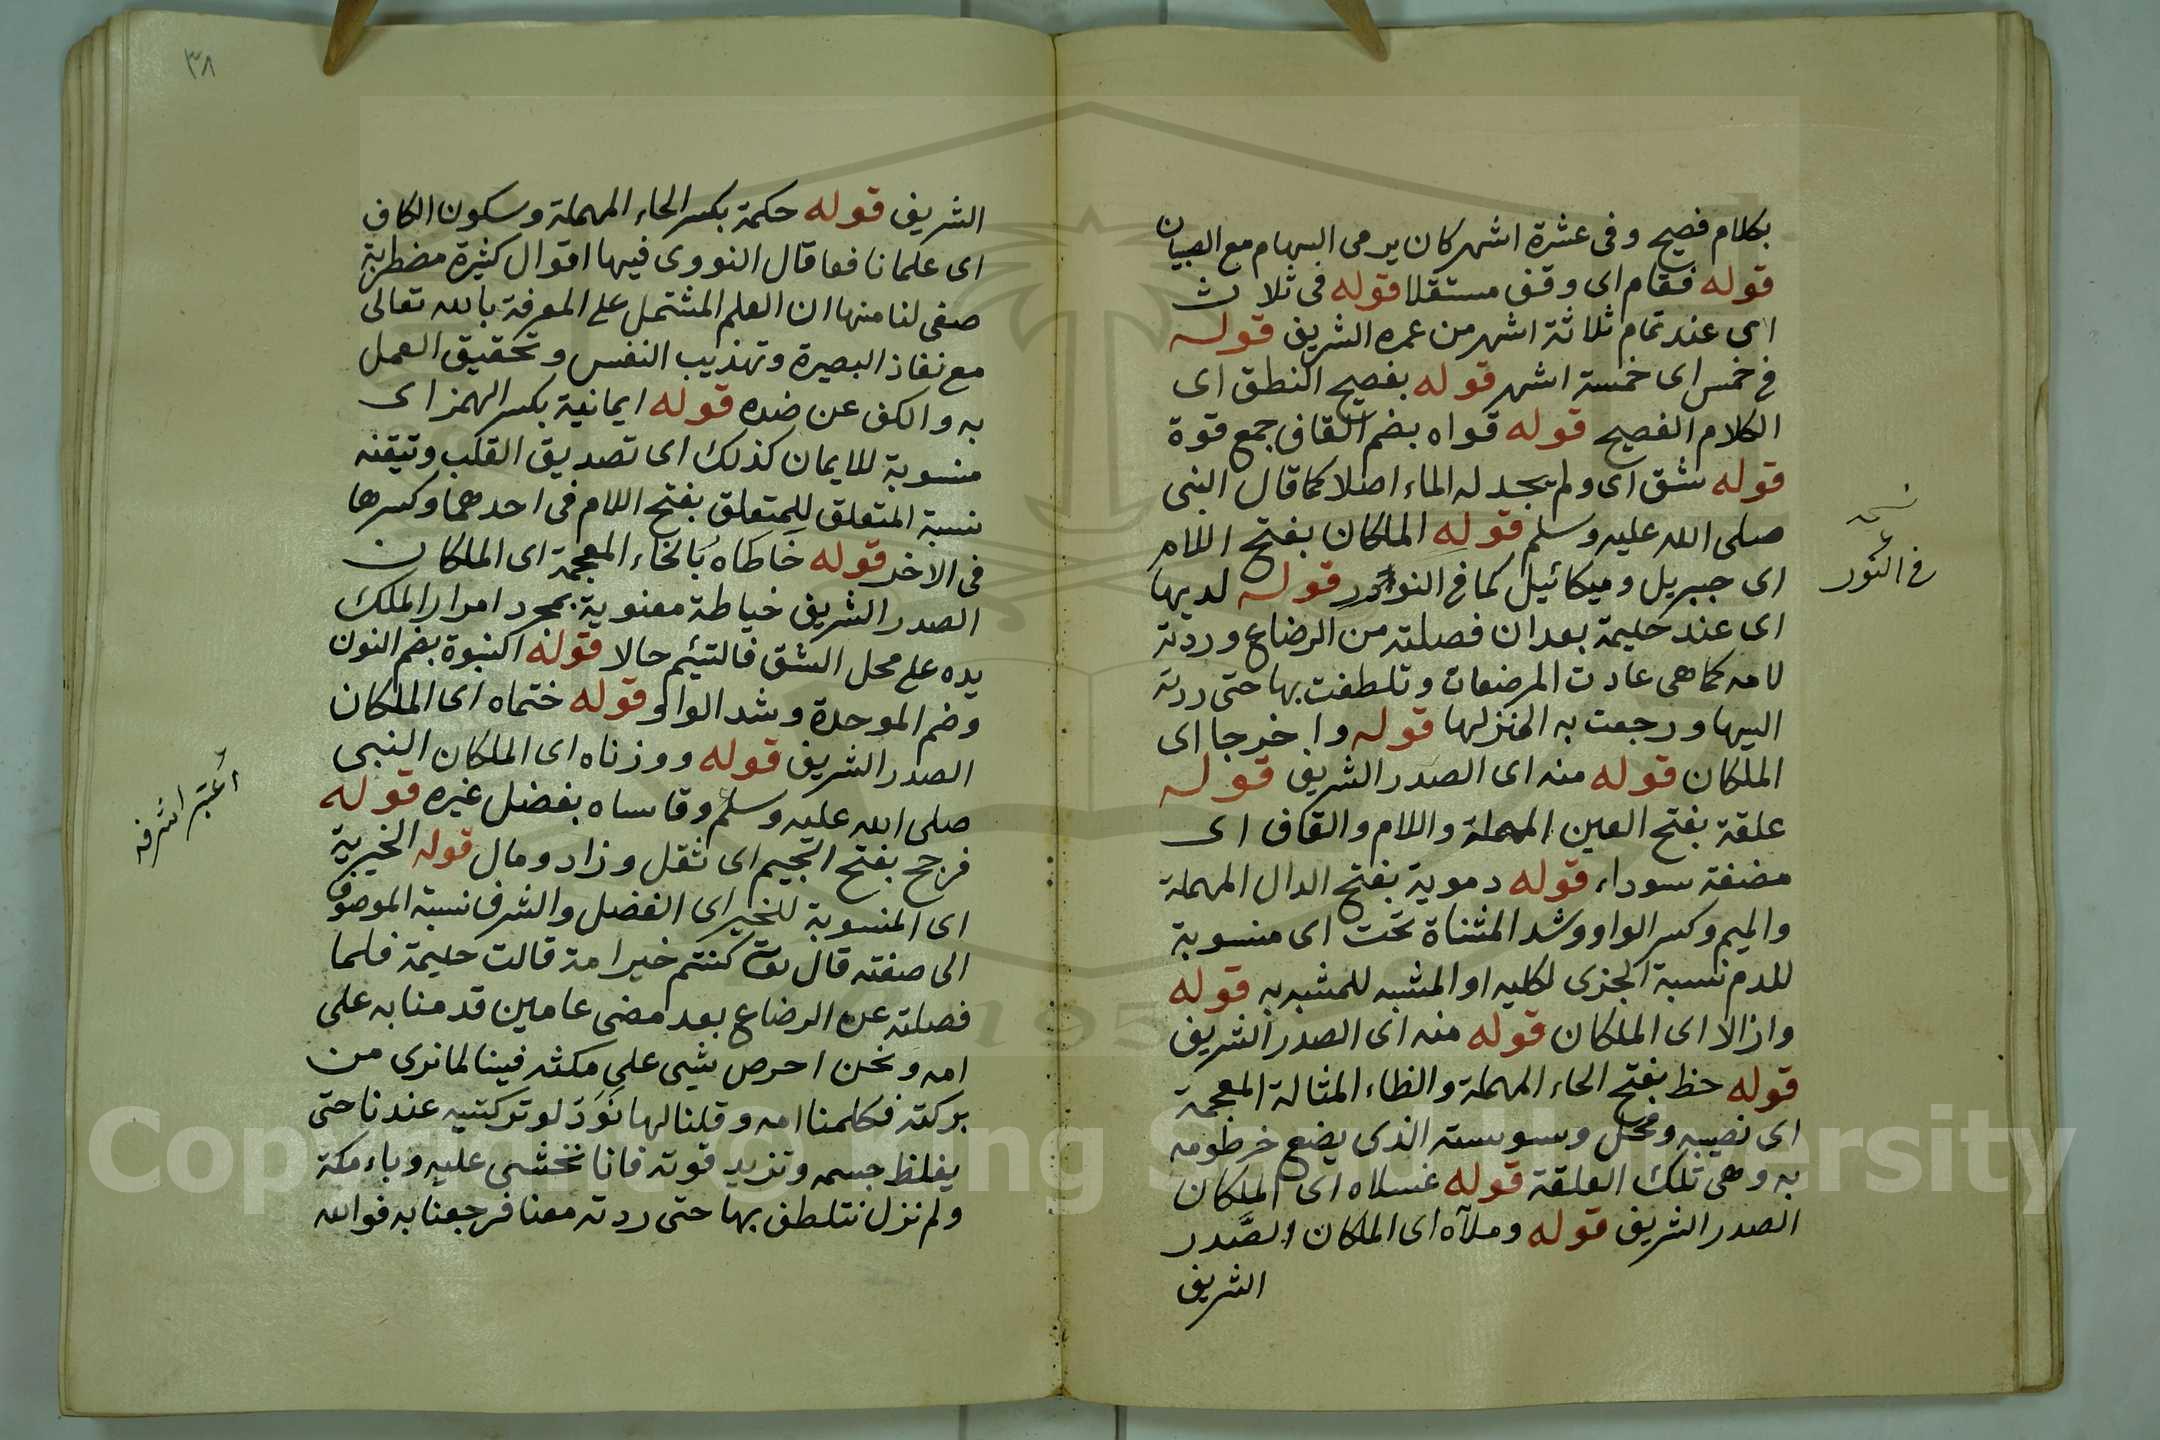 بكلام فصيح وفى عشرة اشهر كان يرمى السهام مع الصبيان
قوله فقام اى وقف مستقلا قوله فى ثلاث
اى عند تمام ثلاثة اشهر من عمره الشريف قوله
فى خمس اى خمسة اشهر قوله بفصيح النطق اى
الكلام الفصيح قوله قواه بضم القاف جمع قوة
قوله شق اى ولم يجد له الماء اصلا كما قال النبى
صلى الله عليه وسلم قوله الملكان بفتح اللام
اى جبريل وميكائيل كما فى النور قوله لديها
اى عند حليمة بعد ان فصلته من الرضاع وردته
لامه كما هى عادت المرضعات وتلطفت بها حتى ردته
اليها ورجعت به لمنزلها قوله واخرجا اى
الملكان قوله منه اى الصدر الشريف قوله
علقة بفتح العين المهملة واللام والقاف اى
مضغة سوداء قوله دموية بفتح الدال المهملة
والميم وكسر الواو وشد المثناة تحت اى منسوبة
للدم نسبة الجزى لكليه او المشبه للمشبه به قوله
وازالا اى الملكان قوله منه اى الصدر الشريف
قوله حظ بفتح الحاء المهملة والظاء المثالة المعجمة
اى نصيبه ومحل وسوسته الذى يضع خرطومه
به وهى تلك العلقة قوله غسلاه اى الملكان
الصدر الشريف قوله وملآه اى الملكان الصدر
الشريف
نسخة
فى النور
٣٨
الشريف قوله حكمة بكسر الحاء المهملة وسكون الكاف
اى علما نافعا قال النووى فيها اقوال كثيرة مضطربة
صفى لنا منها ان العلم المشتمل على المعرفة بالله تعالى
مع نفاذ البصيرة وتهذيب النفس وتحقيق العمل
به والكف عن ضده قوله ايمانية بكسر الهمز اى
منسوبة للايمان كذلك اى تصديق القلب وتيقنه
نسبة المتعلق للمتعلق بفتح اللام فى احدهما وكسرها
فى الاخر قوله خاطاه بالخاء المعجمة اى الملكان
الصدر الشريف خياطة معنوية بمجرد امرار الملك
يده على محل الشق فالتئم حالا قوله النبوة بضم النون
وضم الموحدة وشد الواو قوله ختماه اى الملكان
الصدر الشريف قوله ووزناه اى الملكان النبى
صلى الله عليه وسلم وقاساه بفضل غيره قوله
فرجح بفتح الجيم اى ثقل وزاد ومال قوله الخيرية
اى المنسوبة للخير اى الفضل والشرف نسبة الموصوف
الى صفته قال تعالى كنتم خير امة قالت حليمة فلما
فصلته عن الرضاع بعد مضى عامين قدمنا به على
امه ونحن احرص شيئ على مكثه فينا لما نرى من
بركته فكلمنا امه وقلنا لها نود لو تركتيه عندنا حتى
يغلظ جسمه وتزيد قوته فانا نخشى عليه وباء مكة
ولم نزل نتلطف بها حتى ردته معنا فرجعنا به فوالله
اعتبر اشرفه
Copyright © King Saud University
1957